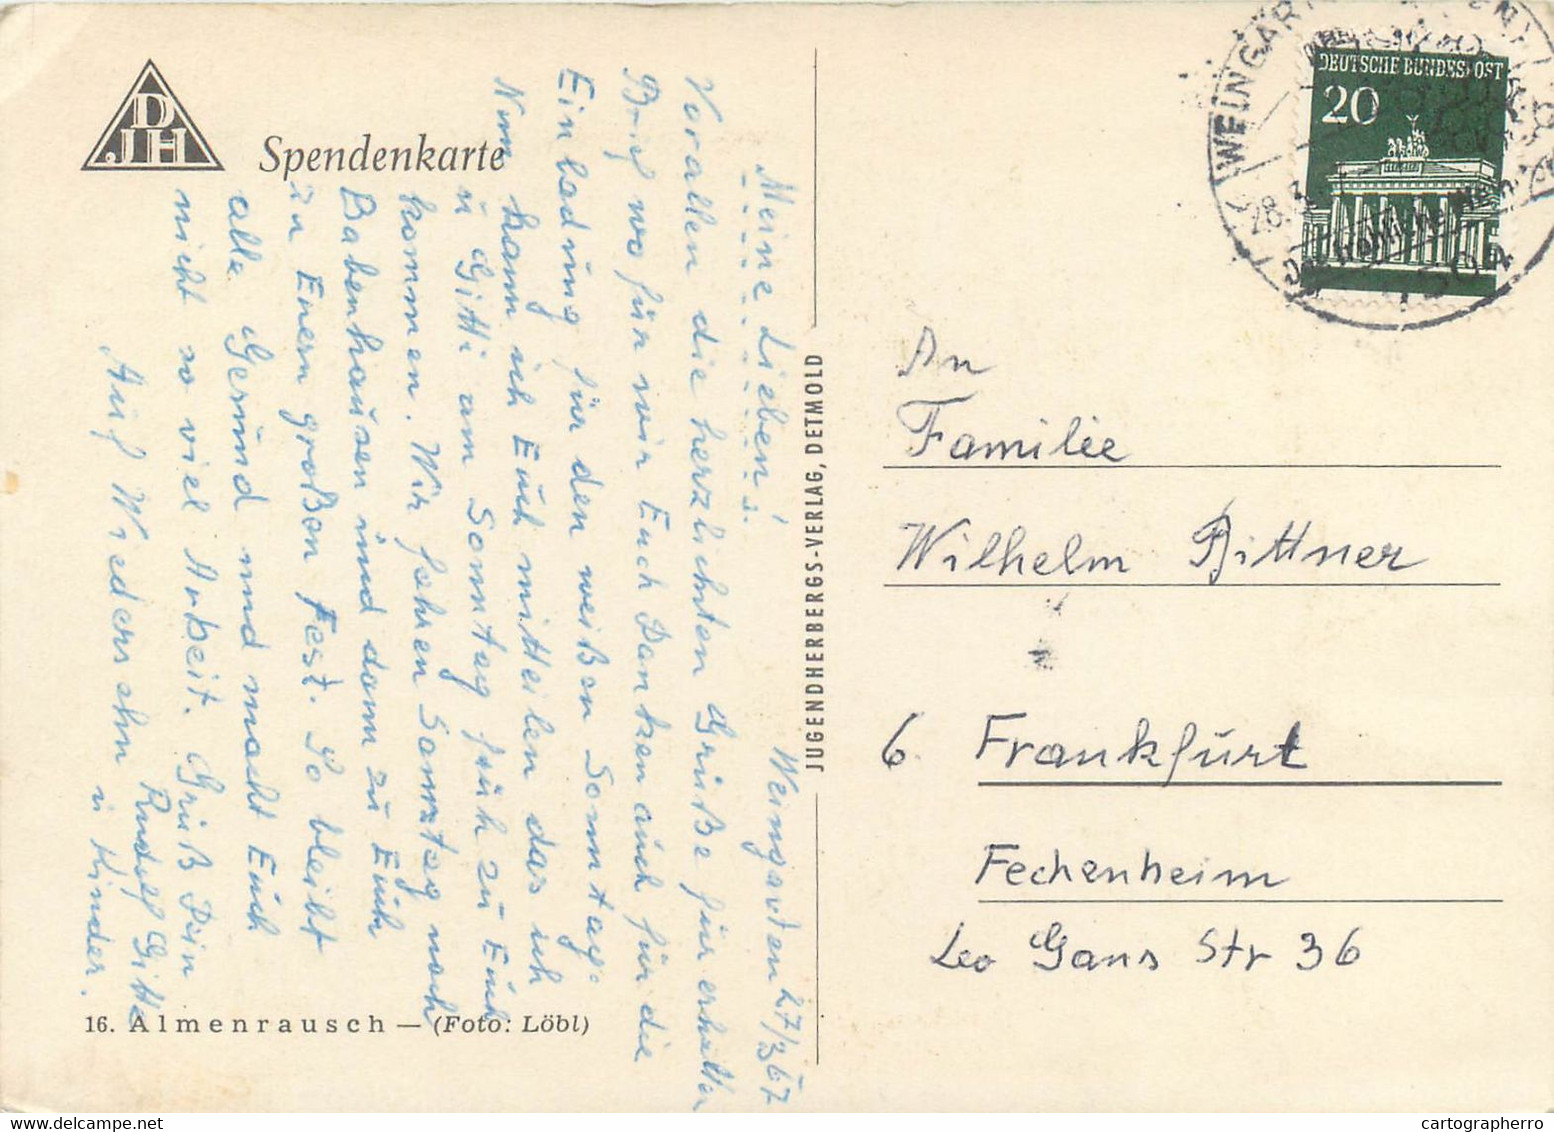 DJH
Spendenkarte
Weingarten 27/3 67
Meine Lieben!
Vorallen die herzlichten Grüße für erhalten
Brief wo für wir Euch Danken auch für die
Einladung für den weißen Sonntag.
Nun kann ich Euch mitteilen das ich
u Gitti am Sonntag früh zu Euch
kommen. Wir fahren Samstag nach
Babenhausen und dann zu Euch
zu Euern großen Fest. So bleibt
alle Gesund und macht Euch
nicht so viel Arbeit. Grüß Dein
Rudolf Gitti
Auf Wiedersehn u Kinder.
16. Almenrausch — (Foto: Löbl)
JUGENDHERBERGS-VERLAG, DETMOLD
DEUTSCHE BUNDESPOST
20
WEINGARTEN
28.3.
An
Familie
Wilhelm Bittner
6. Frankfurt
Fechenheim
Leo Gans Str 36
delcampe.net
cartographerro